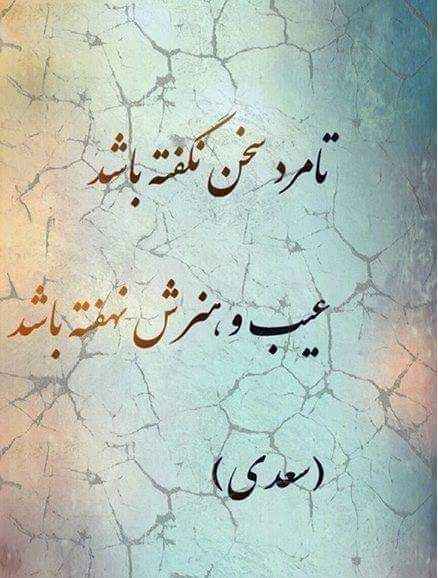 تا مرد سخن نگفته باشد
عیب و هنرش نهفته باشد
(سعدی)